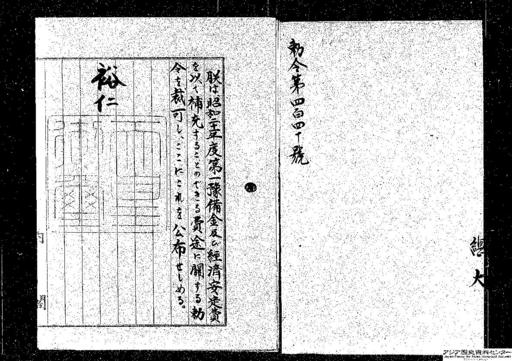 勅令第四百四十號
總
大
朕は昭和二十一年度第一豫備金及び經濟安定費
を以て補充することのできる費途に關する勅
令を裁可し、ここにこれを公布せしめる。
裕仁
内閣
アジア歴史資料センター